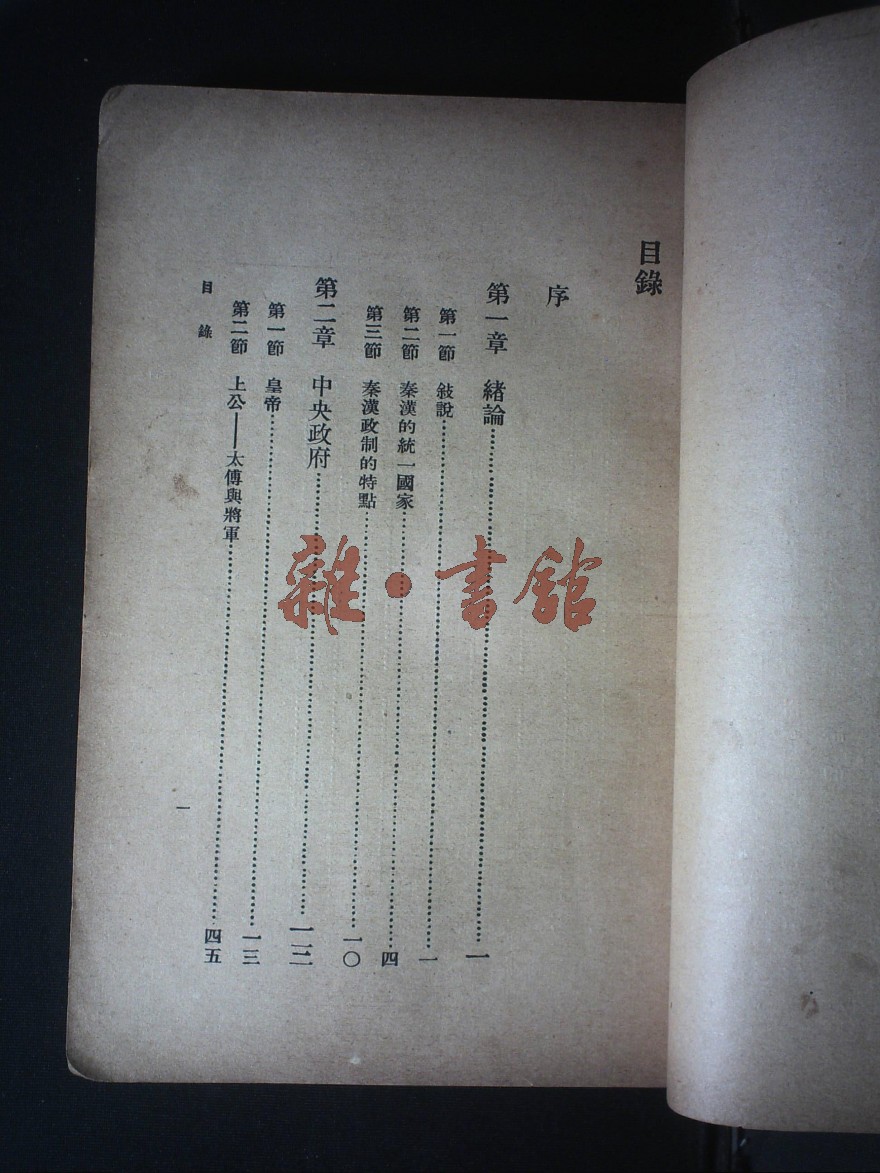 目錄
序
第一章 緒論……一
第一節 敍說……一
第二節 秦漢的統一國家……四
第三節 秦漢政制的特點……一〇
第二章 中央政府……一三
第一節 皇帝……一三
第二節 上公——太傅與將軍……四五
目 錄
一
雜·書館